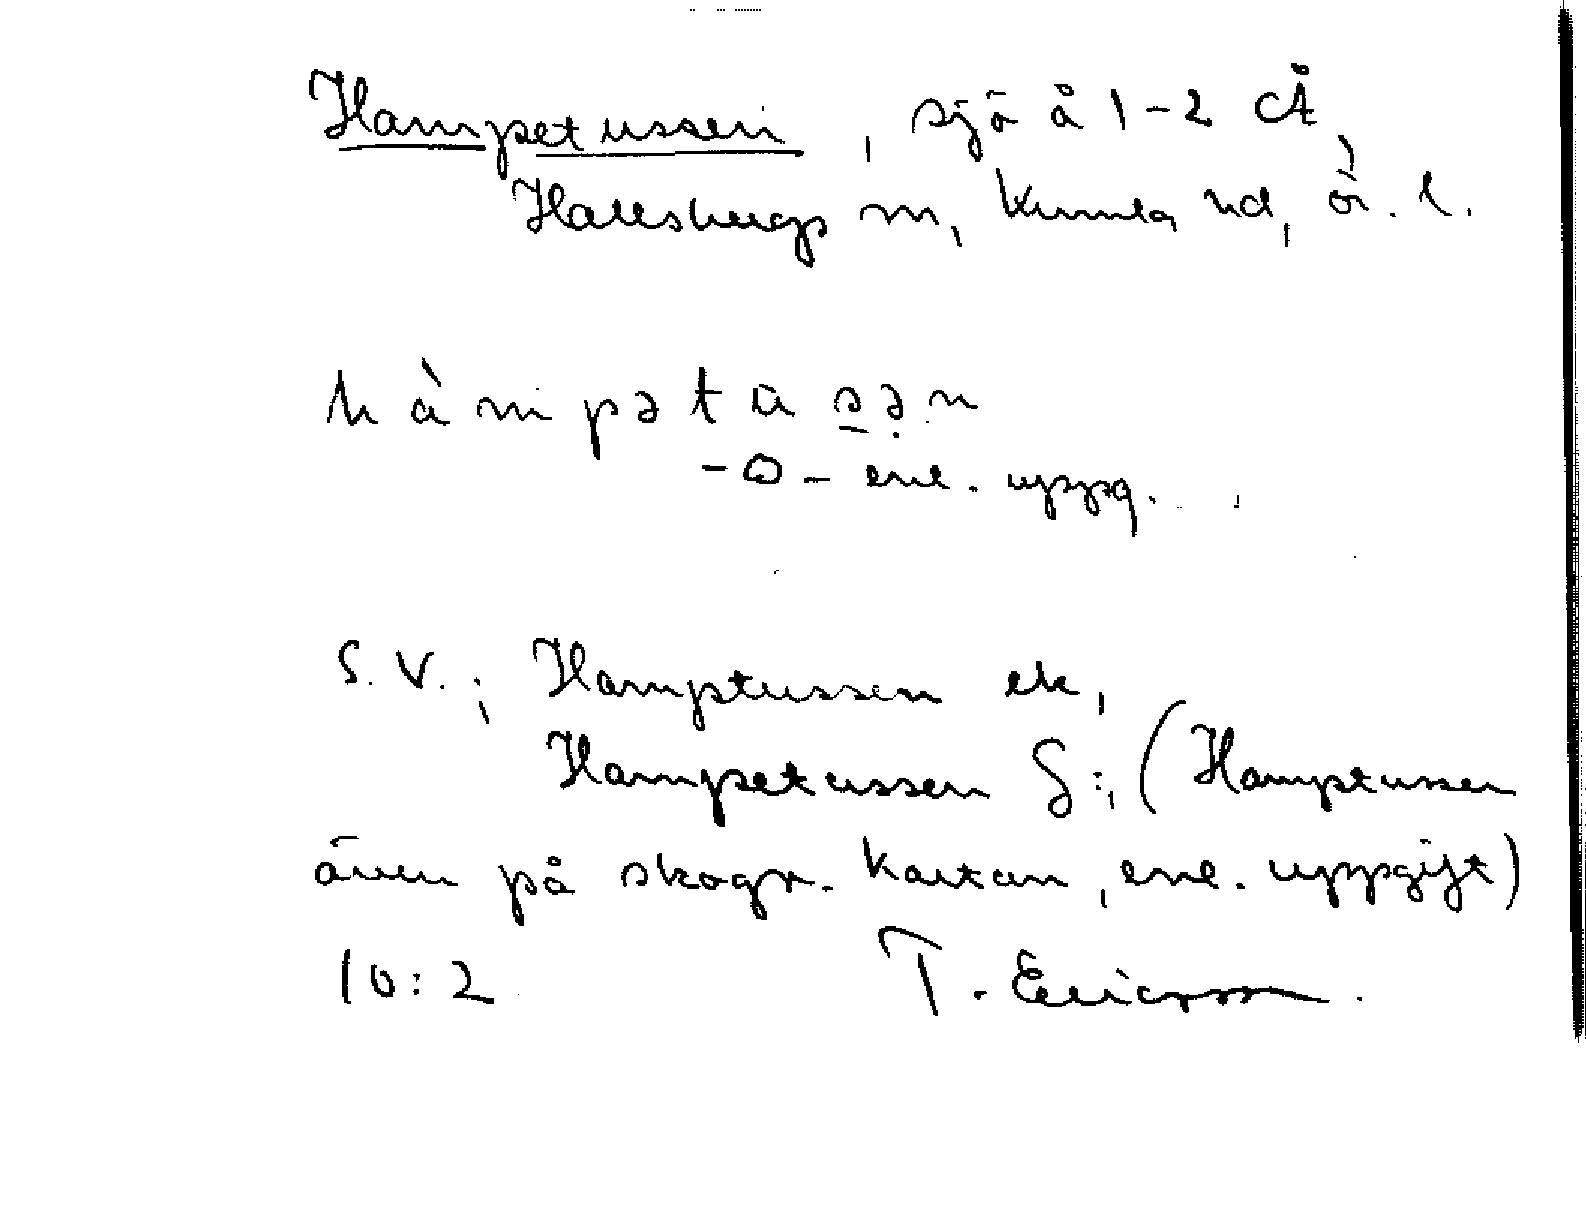 Hampetussen, sjö å 1-2 Å,
Hallsbergs m, Kumla hd, ör. l.
hàmpətusən
-o- enl. uppg.
S.V.; Hamptussen ek,
Hampetussen G:, (Hamptussen
även på skogs. kartan, enl. uppgift)
10:2 T. Ericsson.